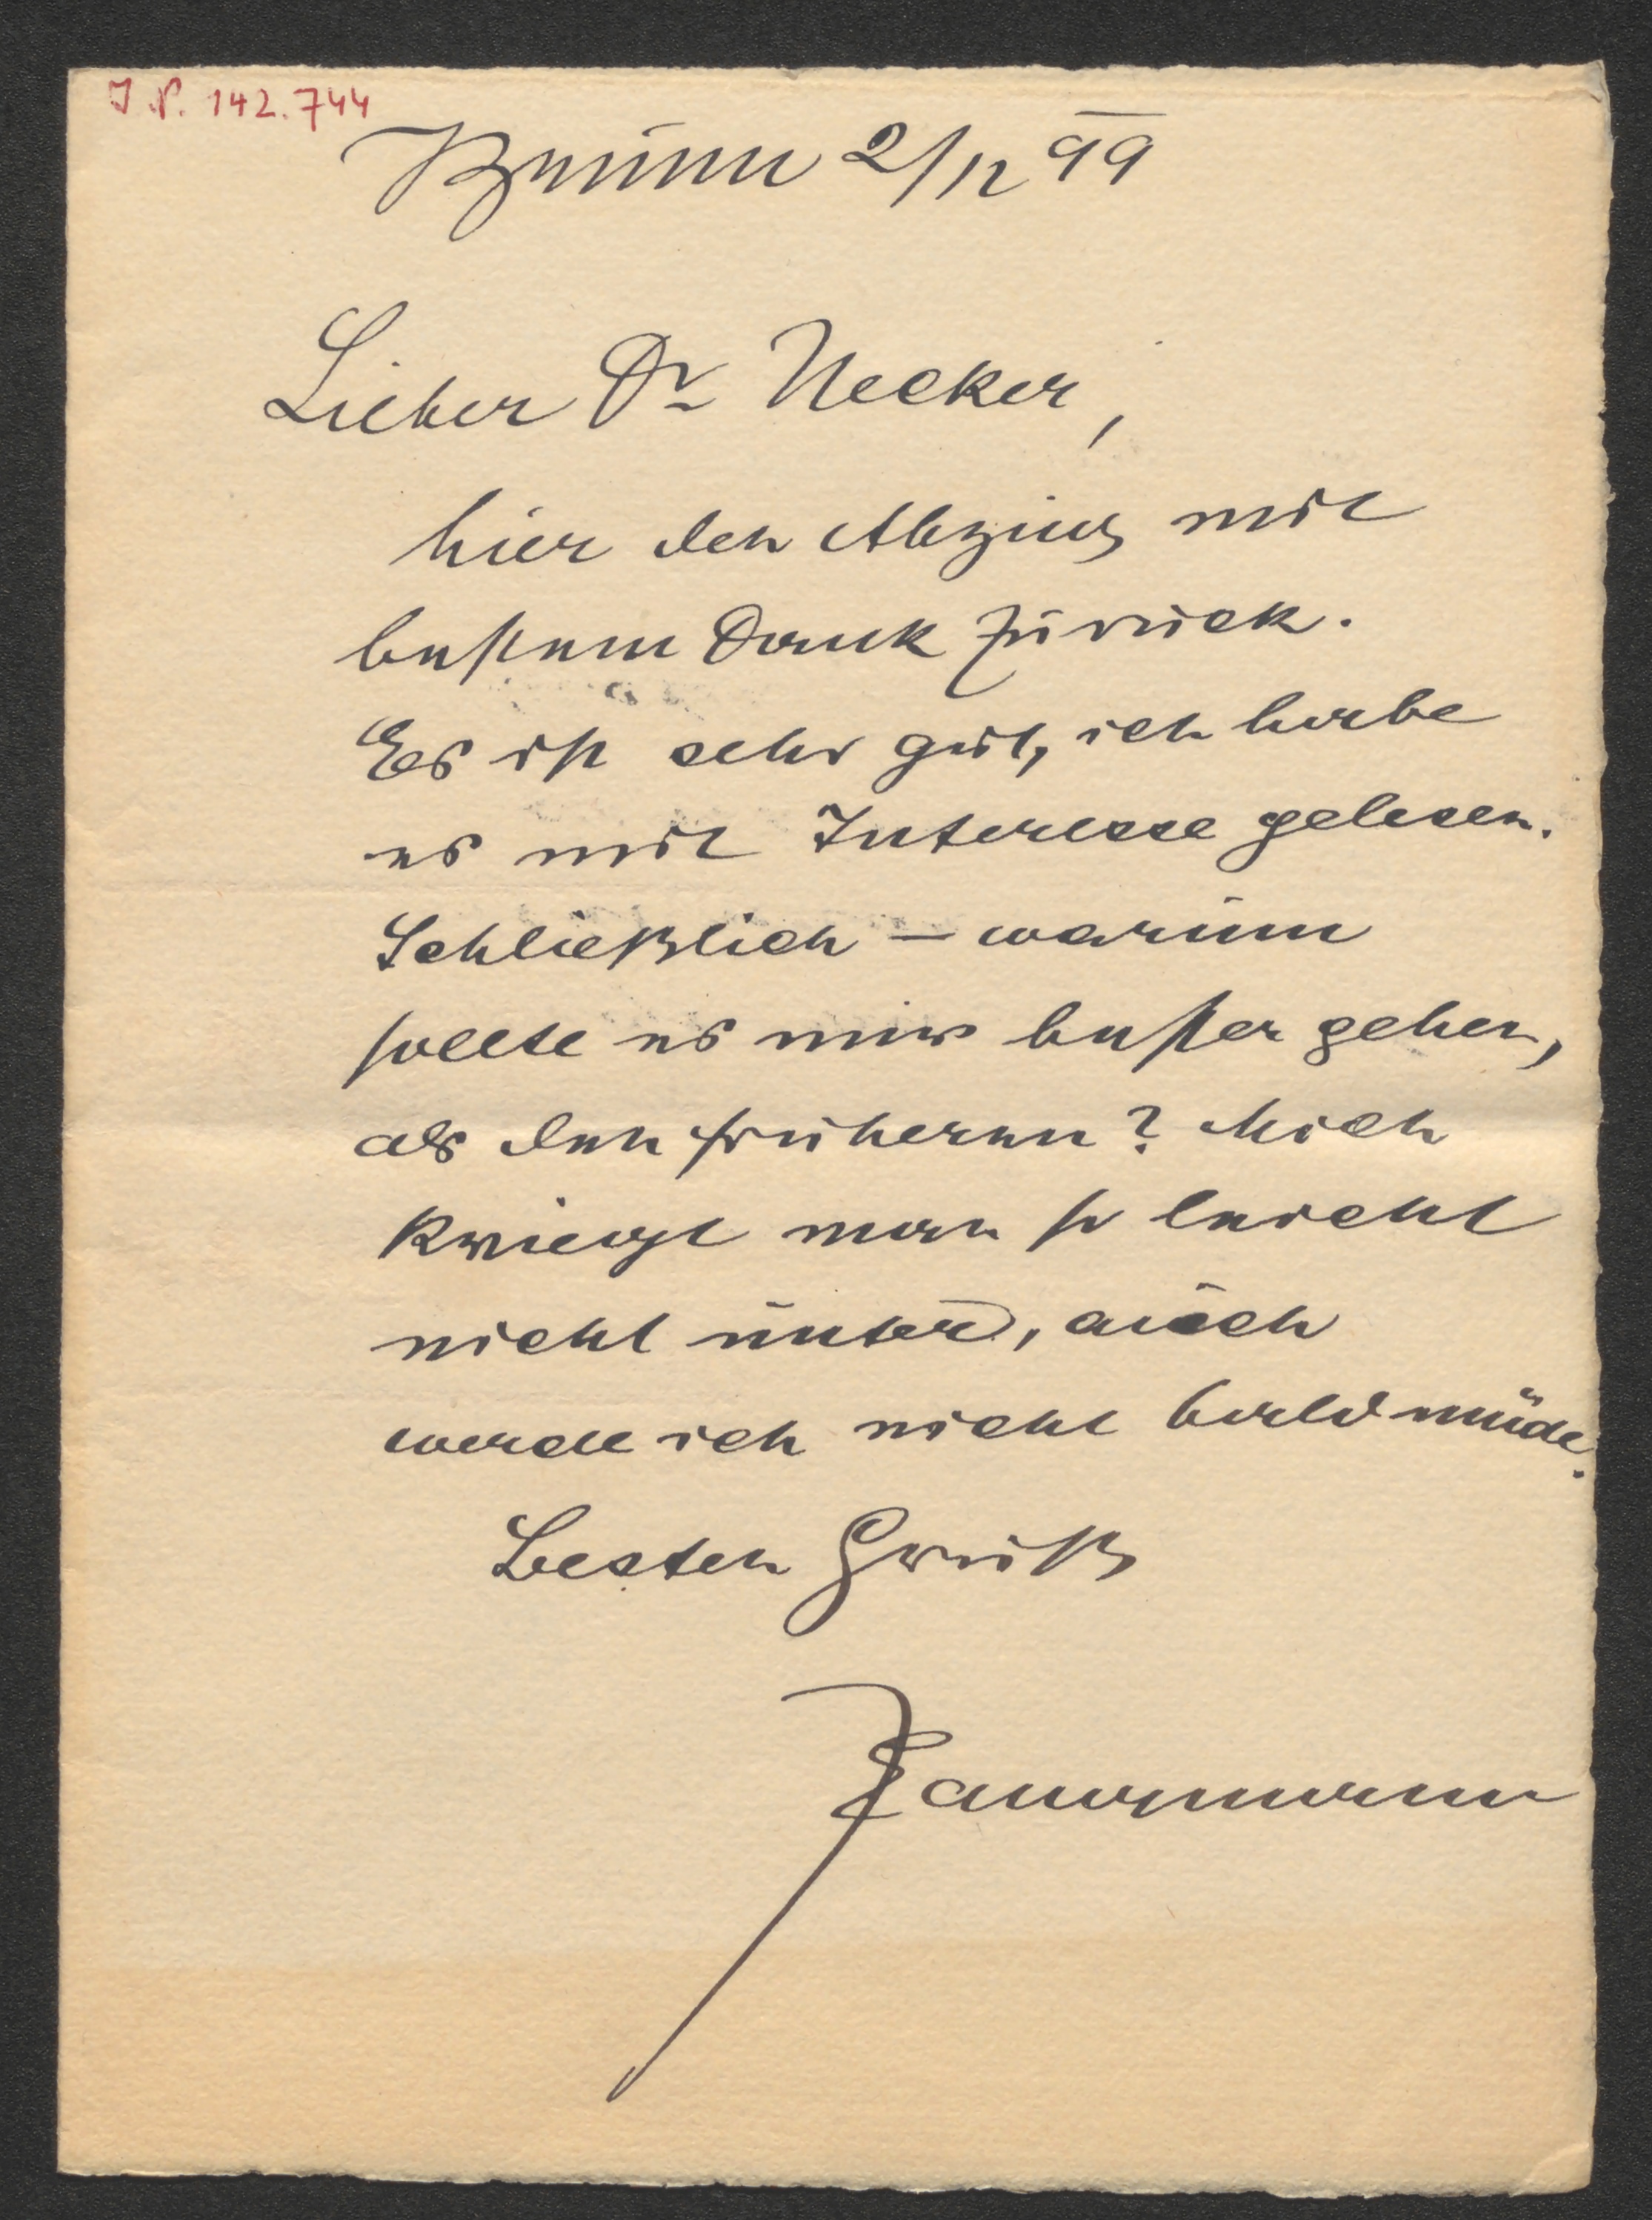 J.N. 142.744
Brünn 2/12 99
Lieber Dr Necker,
hier den Abzug mit
bestem Dank zurück.
Es ist sehr gut, ich habe
es mit Interesse gelesen.
Schließlich – warum
sollte es mir besser gehen,
als den früheren? Mich
kriegt man so leicht
nicht unter, auch
werde ich nicht bald müde.
Besten Gruß